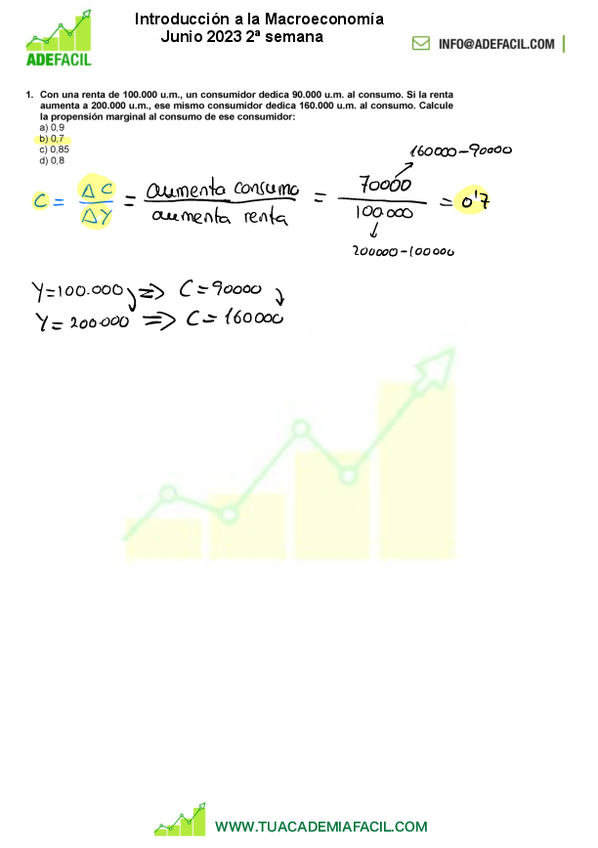 Introducción a la Macroeconomía
Junio 2023 2ª semana
ADEFACIL
INFO@ADEFACIL.COM
1. Con una renta de 100.000 u.m., un consumidor dedica 90.000 u.m. al consumo. Si la renta
aumenta a 200.000 u.m., ese mismo consumidor dedica 160.000 u.m. al consumo. Calcule
la propensión marginal al consumo de ese consumidor:
a) 0,9
b) 0,7
c) 0,85
d) 0,8
160000-90000
C = ΔC / ΔY = aumenta consumo / aumenta renta = 70000 / 100.000 = 0'7
200000-100000
Y=100.000 => C=90000
Y=200.000 => C=160000
WWW.TUACADEMIAFACIL.COM